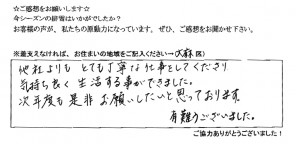 ☆ご感想をお願いします☆
今シーズンの排雪はいかがでしたか？
お客様の声が、私たちの原動力になっています。ぜひ、ご感想をお聞かせ下さい。
※差支えなければ、お住まいの地域をご記入ください→(区)
他社よりも とても丁寧な仕事をしてくださり
気持ち良く 生活する事ができました。
次年度も是非 お願いしたいと思っております
有難うございました。
ご協力ありがとうございました！